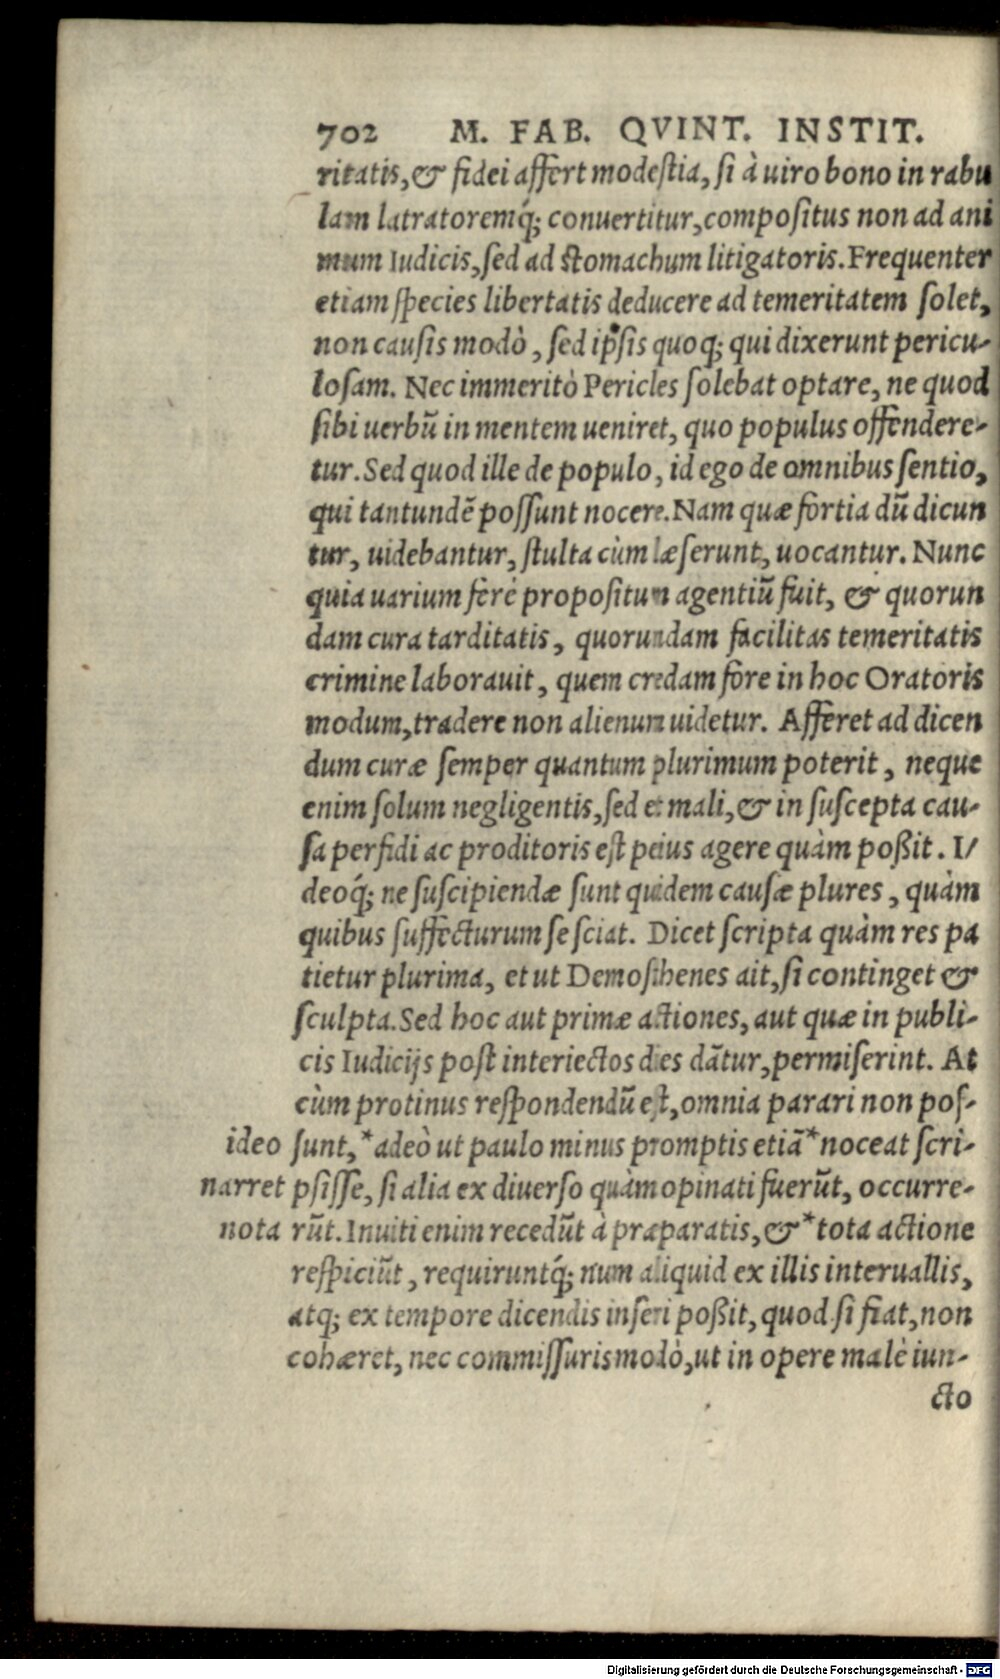 702 M. FAB. QVINT. INSTIT.
ritatis, & fidei affert modestia, si à uiro bono in rabu
lam latratoremq́; conuertitur, compositus non ad ani
mum Iudicis, sed ad stomachum litigatoris. Frequenter
etiam species libertatis deducere ad temeritatem solet,
non causis modò, sed ipsis quoq; qui dixerunt pericu-
losam. Nec immeritò Pericles solebat optare, ne quod
sibi uerbũ in mentem ueniret, quo populus offendere-
tur. Sed quod ille de populo, id ego de omnibus sentio,
qui tantundẽ possunt nocere. Nam quæ fortia dũ dicun
tur, uidebantur, stulta cùm læserunt, uocantur. Nunc
quia uarium ferè propositum agentiũ fuit, & quorun
dam cura tarditatis, quorundam facilitas temeritatis
crimine laborauit, quem credam fore in hoc Oratoris
modum, tradere non alienum uidetur. Afferet ad dicen
dum curæ semper quantum plurimum poterit, neque
enim solum negligentis, sed et mali, & in suscepta cau-
sa perfidi ac proditoris est peius agere quàm poßit. I/
deoq́; ne suscipiendæ sunt quidem causæ plures, quàm
quibus suffecturum se sciat. Dicet scripta quàm res pa
tietur plurima, et ut Demosthenes ait, si continget &
sculpta. Sed hoc aut primæ actiones, aut quæ in publi-
cis Iudicijs post interiectos dies dãtur, permiserint. At
cùm protinus respondendũ est, omnia parari non pos-
ideo sunt, *adeò ut paulo minus promptis etiã *noceat scri-
narret psisse, si alia ex diuerso quàm opinati fuerũt, occurre-
nota rũt. Inuiti enim recedũt à præparatis, & *tota actione
respiciũt, requiruntq́; num aliquid ex illis interuallis,
atq; ex tempore dicendis inseri poßit, quod si fiat, non
cohæret, nec commissuris modò, ut in opere malè iun-
cto
Digitalisierung gefördert durch die Deutsche Forschungsgemeinschaft - DFG